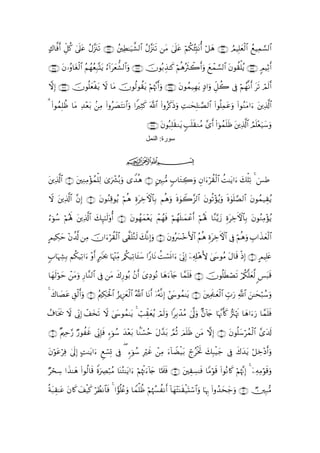 ٱلسَّمِيعُ ٱلْعَلِيمُ ﴿٢٢٠﴾ هَلْ أُنَبِّئُكُمْ عَلَىٰ مَن تَنَزَّلُ ٱلشَّيَـٰطِينُ ﴿٢٢١﴾ تَنَزَّلُ عَلَىٰ كُلِّ أَفَّاكٍ
أَثِيمٍ ﴿٢٢٢﴾ يُلْقُونَ ٱلسَّمْعَ وَأَكْثَرُهُمْ كَـٰذِبُونَ ﴿٢٢٣﴾ وَٱلشُّعَرَآءُ يَتَّبِعُهُمُ ٱلْغَاوُۥنَ ﴿٢٢٤﴾ أَلَمْ
تَرَ أَنَّهُمْ فِى كُلِّ وَادٍ يَهِيمُونَ ﴿٢٢٥﴾ وَأَنَّهُمْ يَقُولُونَ مَا لَا يَفْعَلُونَ ﴿٢٢٦﴾ إِلَّا
ٱلَّذِينَ ءَامَنُوا۟ وَعَمِلُوا۟ ٱلصَّـٰلِحَـٰتِ وَذَكَرُوا۟ ٱللَّهَ كَثِيرًا وَٱنتَصَرُوا۟ مِنۢ بَعْدِ مَا ظُلِمُوا۟ ۗ
وَسَيَعْلَمُ ٱلَّذِينَ ظَلَمُوٓا۟ أَىَّ مُنقَلَبٍ يَنقَلِبُونَ ﴿٢٢٧﴾
سورة: النمل
بِسْمِ ٱللَّهِ ٱلرَّحْمَـٰنِ ٱلرَّحِيمِ
طسٓ ۚ تِلْكَ ءَايَـٰتُ ٱلْقُرْءَانِ وَكِتَابٍ مُّبِينٍ ﴿١﴾ هُدًى وَبُشْرَىٰ لِلْمُؤْمِنِينَ ﴿٢﴾ ٱلَّذِينَ
يُقِيمُونَ ٱلصَّلَوٰةَ وَيُؤْتُونَ ٱلزَّكَوٰةَ وَهُم بِٱلْءَاخِرَةِ هُمْ يُوقِنُونَ ﴿٣﴾ إِنَّ ٱلَّذِينَ لَا
يُؤْمِنُونَ بِٱلْءَاخِرَةِ زَيَّنَّا لَهُمْ أَعْمَـٰلَهُمْ فَهُمْ يَعْمَهُونَ ﴿٤﴾ أُو۟لَـٰٓئِكَ ٱلَّذِينَ لَهُمْ سُوٓءُ
ٱلْعَذَابِ وَهُمْ فِى ٱلْءَاخِرَةِ هُمُ ٱلْأَخْسَرُونَ ﴿٥﴾ وَإِنَّكَ لَتُلَقَّى ٱلْقُرْءَانَ مِن لَّدُنْ حَكِيمٍ
عَلِيمٍ ﴿٦﴾ إِذْ قَالَ مُوسَىٰ لِأَهْلِهِۦٓ إِنِّىٓ ءَانَسْتُ نَارًا سَـَٔاتِيكُم مِّنْهَا بِخَبَرٍ أَوْ ءَاتِيكُم بِشِهَابٍ
قَبَسٍ لَّعَلَّكُمْ تَصْطَلُونَ ﴿٧﴾ فَلَمَّا جَآءَهَا نُودِىَ أَنۢ بُورِكَ مَن فِى ٱلنَّارِ وَمَنْ حَوْلَهَا
وَسُبْحَـٰنَ ٱللَّهِ رَبِّ ٱلْعَـٰلَمِينَ ﴿٨﴾ يَـٰمُوسَىٰٓ إِنَّهُۥٓ أَنَا ٱللَّهُ ٱلْعَزِيزُ ٱلْحَكِيمُ ﴿٩﴾ وَأَلْقِ عَصَاكَ ۚ
فَلَمَّا رَءَاهَا تَهْتَزُّ كَأَنَّهَا جَآنٌّ وَلَّىٰ مُدْبِرًا وَلَمْ يُعَقِّبْ ۚ يَـٰمُوسَىٰ لَا تَخَفْ إِنِّى لَا يَخَافُ
لَدَىَّ ٱلْمُرْسَلُونَ ﴿١٠﴾ إِلَّا مَن ظَلَمَ ثُمَّ بَدَّلَ حُسْنًۢا بَعْدَ سُوٓءٍ فَإِنِّى غَفُورٌ رَّحِيمٌ ﴿١١﴾
وَأَدْخِلْ يَدَكَ فِى جَيْبِكَ تَخْرُجْ بَيْضَآءَ مِنْ غَيْرِ سُوٓءٍ ۖ فِى تِسْعِ ءَايَـٰتٍ إِلَىٰ فِرْعَوْنَ
وَقَوْمِهِۦٓ ۚ إِنَّهُمْ كَانُوا۟ قَوْمًا فَـٰسِقِينَ ﴿١٢﴾ فَلَمَّا جَآءَتْهُمْ ءَايَـٰتُنَا مُبْصِرَةً قَالُوا۟ هَـٰذَا سِحْرٌ
مُّبِينٌ ﴿١٣﴾ وَجَحَدُوا۟ بِهَا وَٱسْتَيْقَنَتْهَآ أَنفُسُهُمْ ظُلْمًا وَعُلُوًّا ۚ فَٱنظُرْ كَيْفَ كَانَ عَـٰقِبَةُ